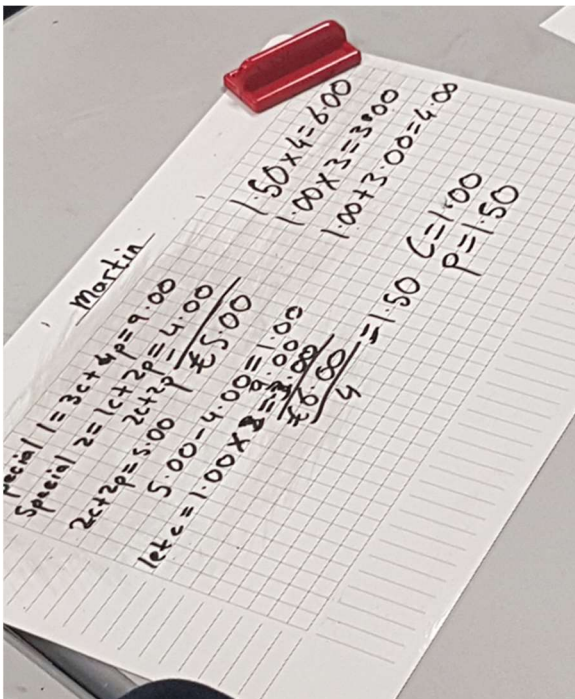 Martin
pecial 1 = 3c + 4p = 9.00
Special 2 = 1c + 2p = 4.00
2c + 2p £5.00
2c + 2p = 5.00
5.00 - 4.00 = 1.00
let c = 1.00 × 3 = 3.00
9.00
£6.00
4
= 1.50
C = 1.00
P = 1.50
1.50 × 4 = 6.00
1.00 × 3 = 3.00
1.00 + 3.00 = 4.00